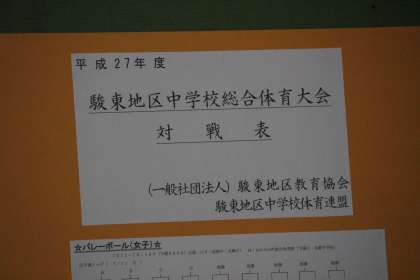 平成27年度
駿東地区中学校総合体育大会
対戦表
(一般社団法人)駿東地区教育協会
駿東地区中学校体育連盟
☆バレーボール(女子)☆